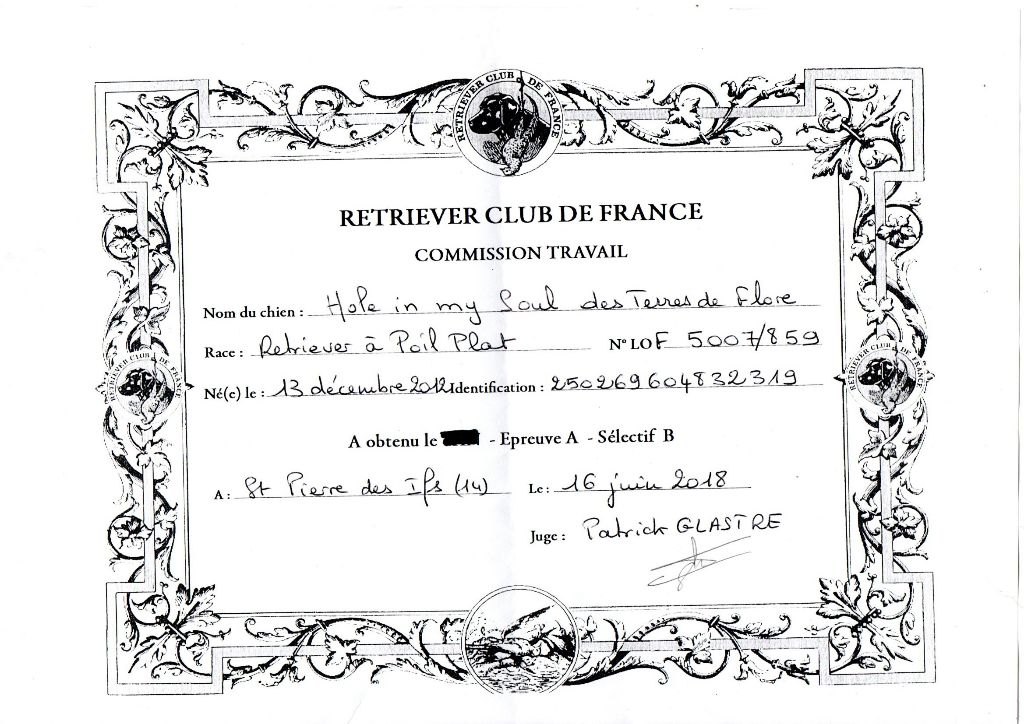 RETRIEVER CLUB DE FRANCE
RETRIEVER CLUB DE FRANCE
COMMISSION TRAVAIL
Nom du chien : Hole in my Soul des Terres de Flore
Race : Retriever à Poil Plat N° LOF 5007/859
Né(e) le : 13 décembre 2012 Identification : 250269604832319
RETRIEVER CLUB DE FRANCE
RETRIEVER CLUB DE FRANCE
A obtenu le - Epreuve A - Sélectif B
A : St Pierre des Ifs (14) Le : 16 juin 2018
Juge : Patrick GLASTRE